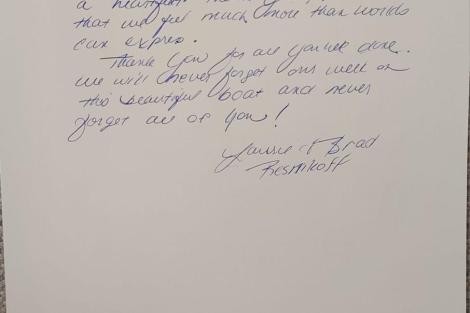 a heartfelt
that we feel much more than worlds
can express.
Thank you for all you've done.
We will never forget our week on
this beautiful boat and never
forget all of you!
Laurie + Brad
Resnikoff